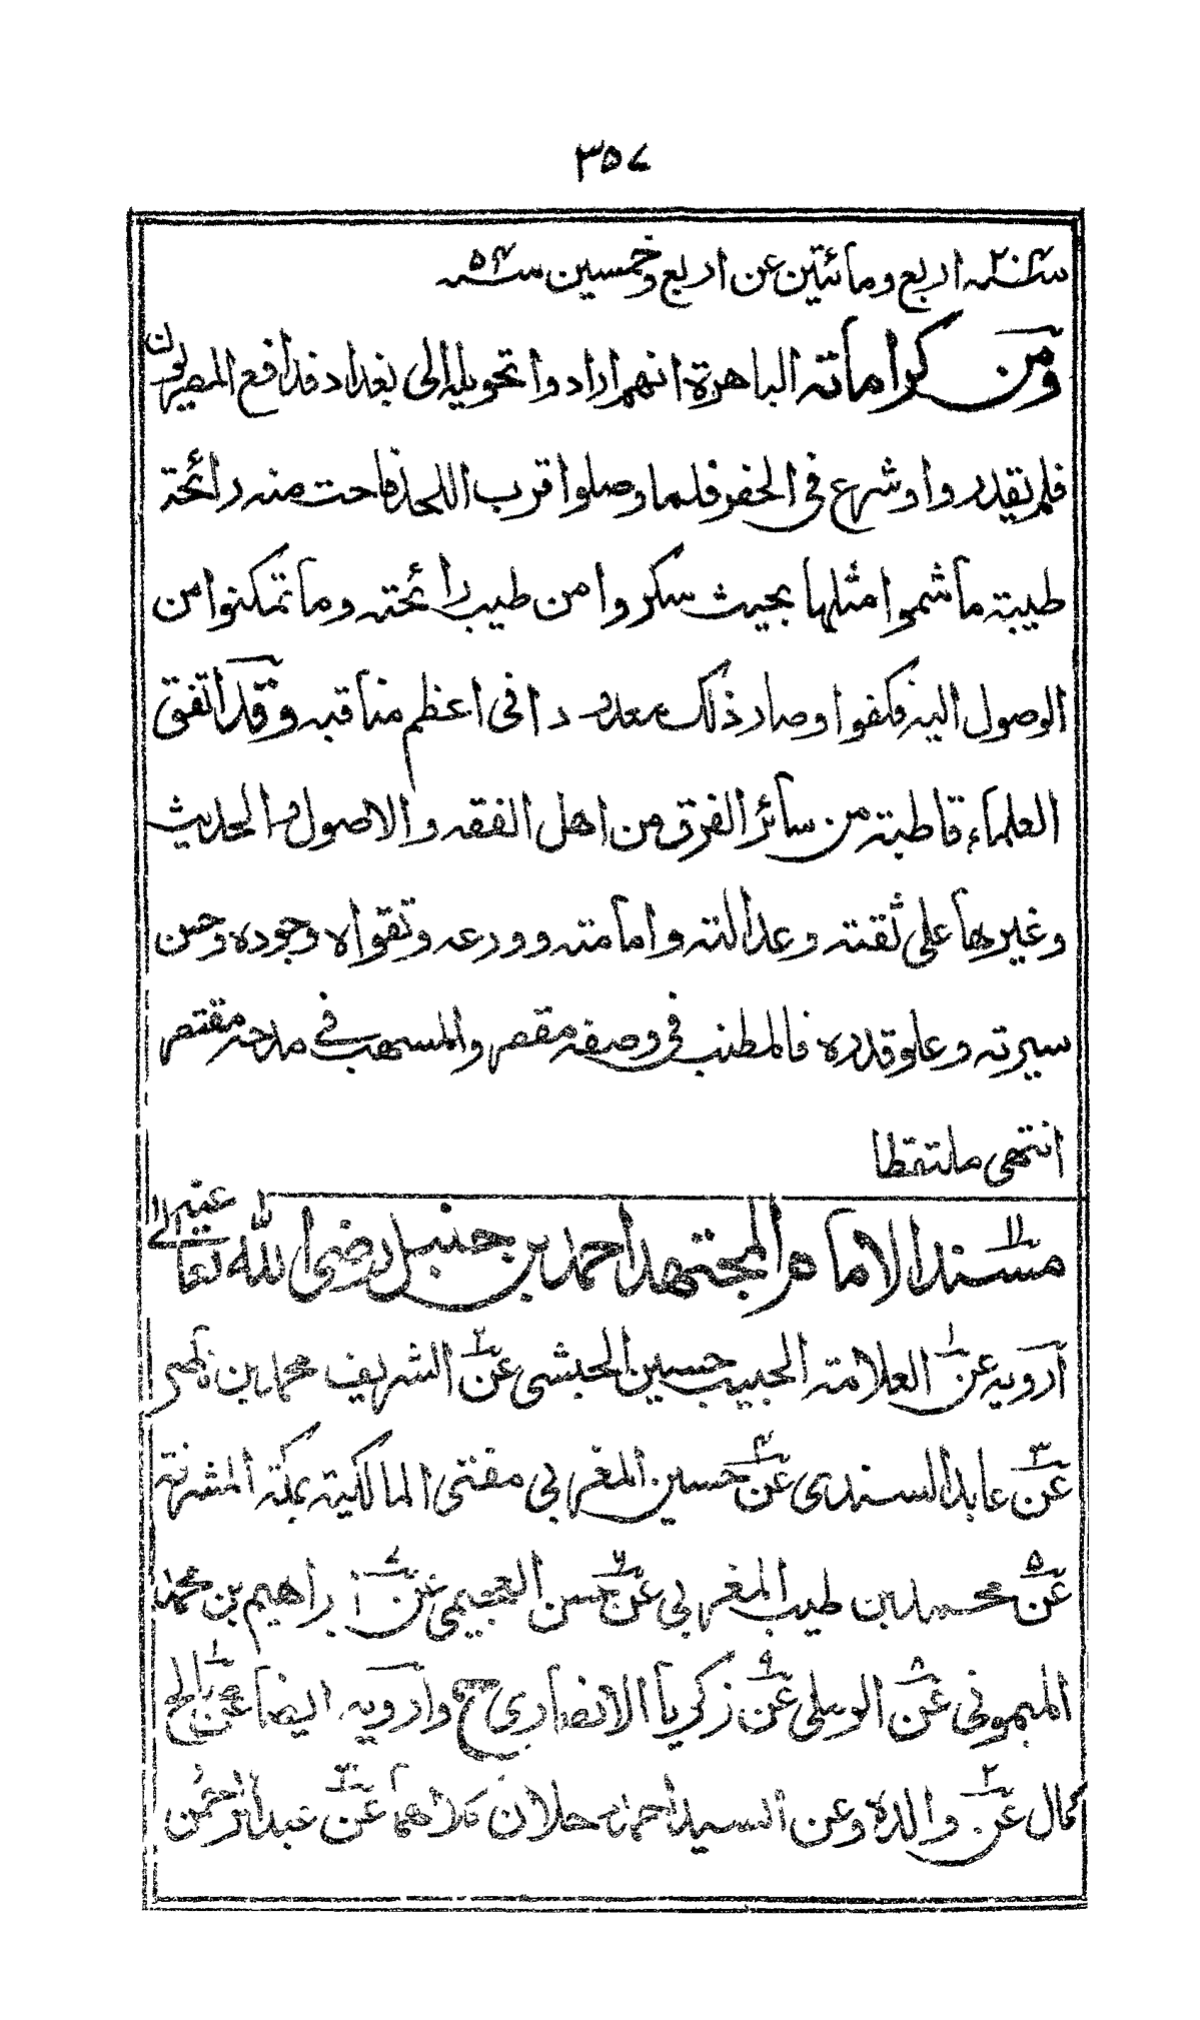 ٣٥٧
سنة ٢٠٤ اربع ومائتين عن اربع وخمسين سنة ٥٤
ومن كراماته الباهرة انهم ارادوا تحويله الى بغداد فدافع المصريون
فلم يقدروا وشرع فى الحفر فلما وصلوا قرب اللحد فاحت منه رائحة
طيبة ما شموا مثلها بحيث سكروا من طيب رائحته وما تمكنوا من
الوصول اليه فكفوا وصار ذلك معدودا فى اعظم مناقبه وقد اتفق
العلماء قاطبة من سائر الفرق من اهل الفقه والاصول والحديث
وغيرها على ثقته وعدالته وامامته وورعه وتقواه وجوده وحسن
سيرته وعلو قدره فالمطنب فى وصفه مقصر والمسهب فى مدحه مقتصر
انتهى ملتقطا
١١ مسند الامام المجتهد احمد بن حنبل رضى الله تعالى عنه
ارويه عن ١ العلامة الحبيب حسين الحبشى عن ٢ الشريف محمد بن ناصر
عن ٣ عابد السندى عن ٤ حسين المغربي مفتى المالكية بمكة المشرفة
عن ٥ محمد بن طيب المغربي عن ٦ حسن العجيمى عن ٧ ابراهيم بن محمد
الميمونى عن ٨ الرملى عن ٩ زكريا الانصارى ح وارويه ايضا عن ١ صالح
كمال عن ٢ والده وعن السيد احمد دحلان كلاهما عن ٣ عبد الرحمن